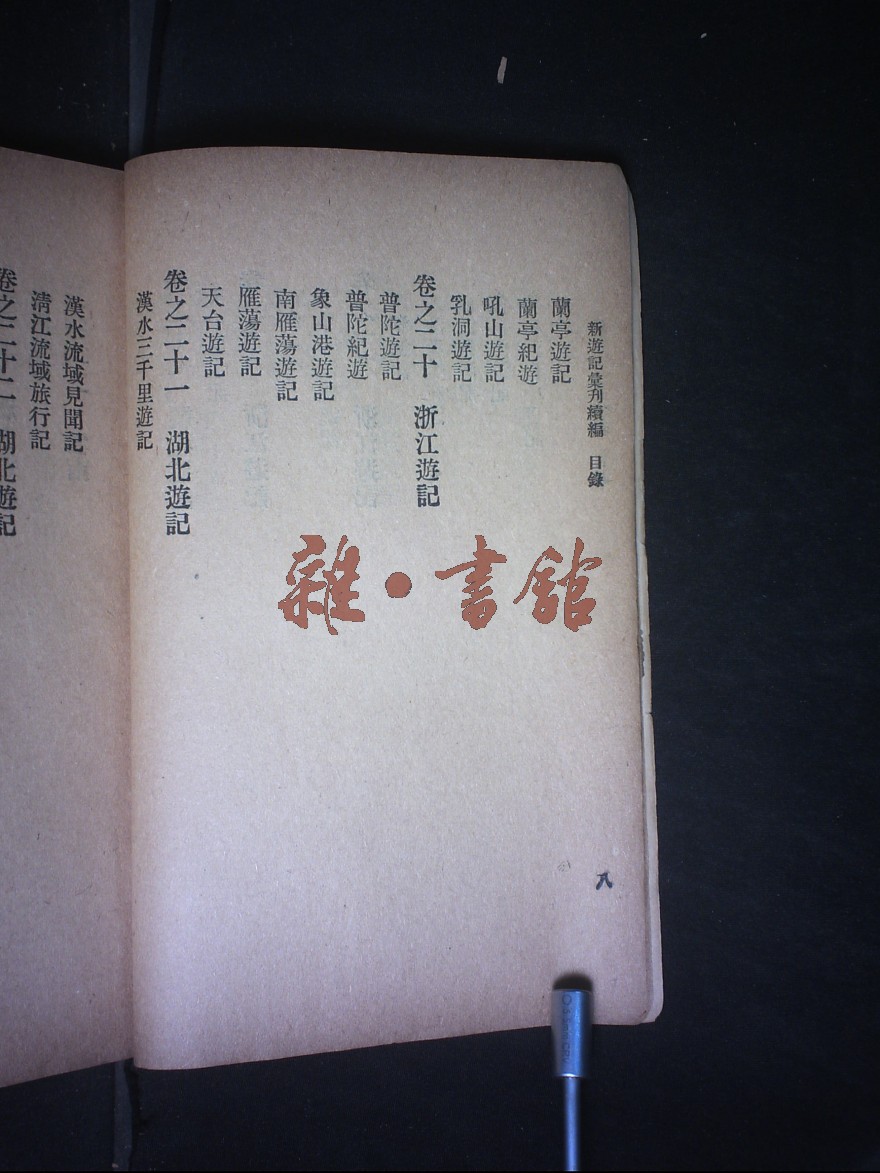 新遊記彙刋續編　目錄
蘭亭遊記
蘭亭紀遊
吼山遊記
乳洞遊記
卷之二十　浙江遊記
普陀遊記
普陀紀遊
象山港遊記
南雁蕩遊記
雁蕩遊記
天台遊記
卷之二十一　湖北遊記
漢水三千里遊記
八
漢水流域見聞記
淸江流域旅行記
卷之二十二　湖北遊記
雜•書館